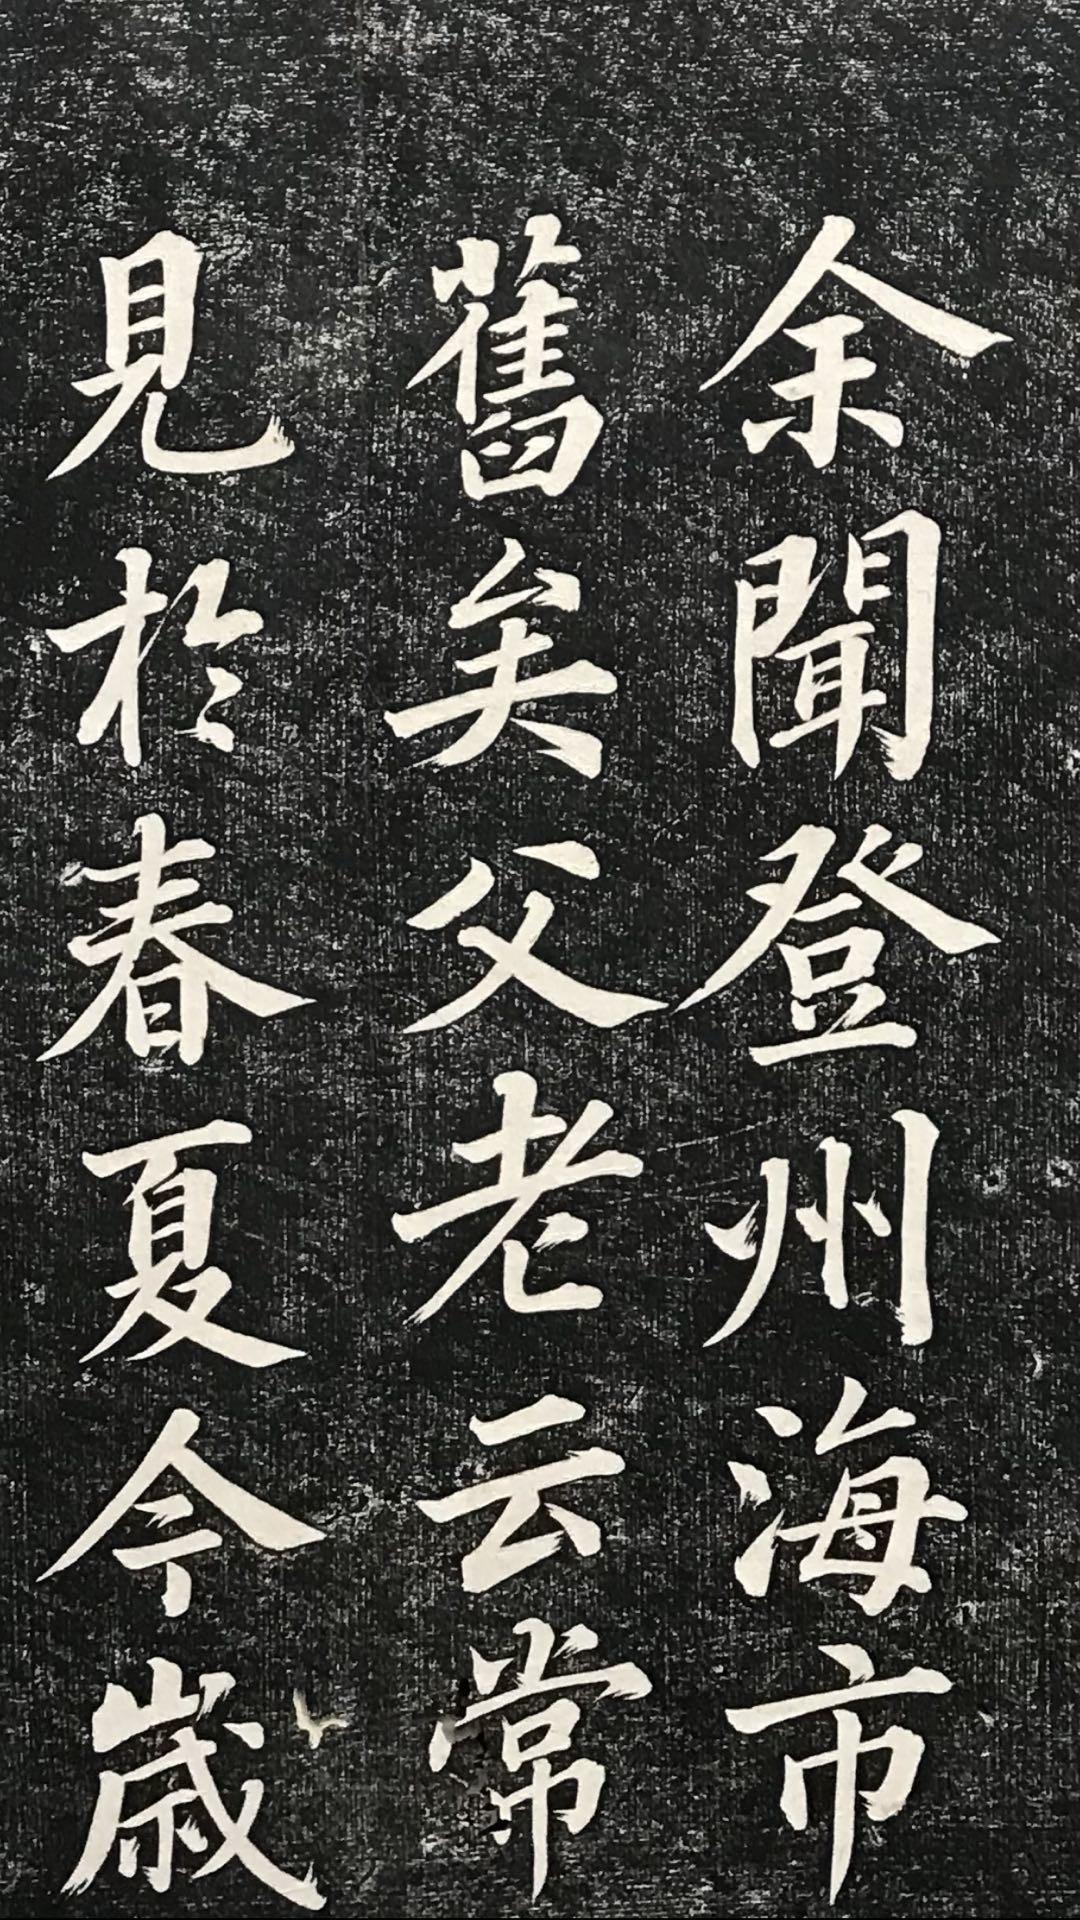 余聞登州海市
舊矣父老云常
見於春夏今歳